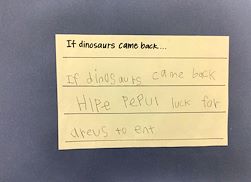 If dinosaurs came back...
If dinosaurs came back
Hlpe Pepul luck for
areus to ent